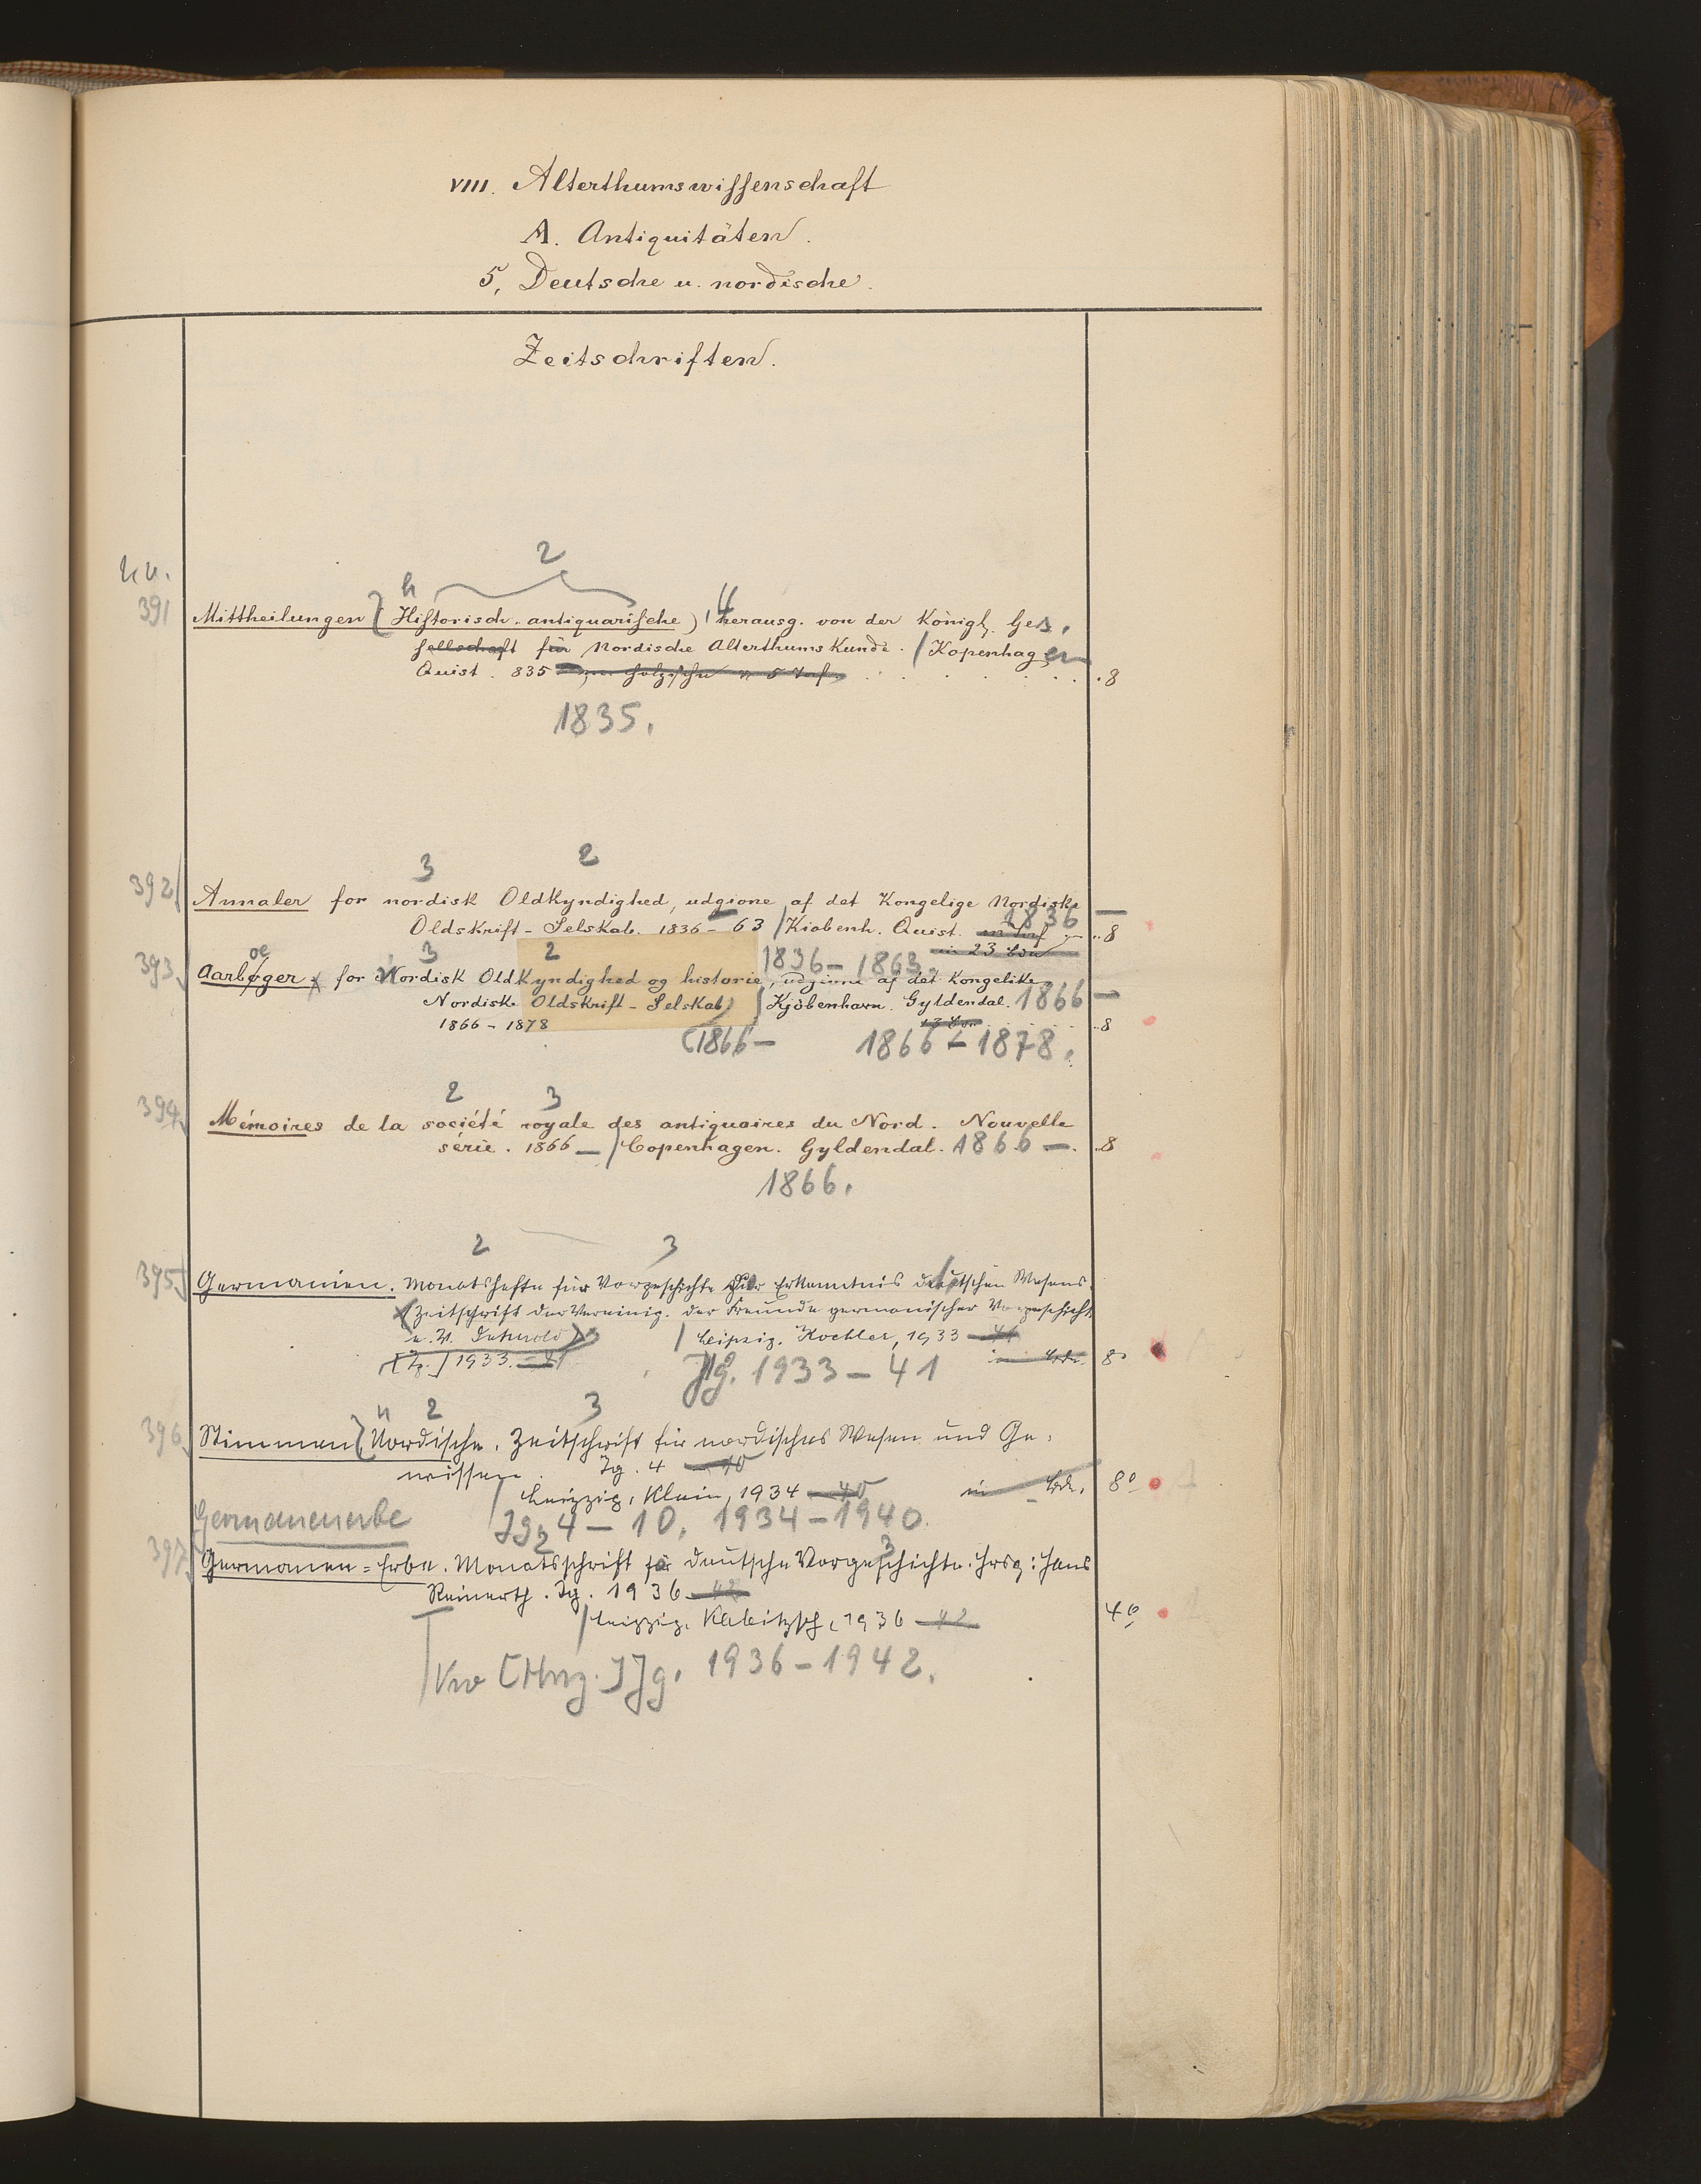 VIII. Alterthumswissenschaft
A. Antiquitäten.
5, Deutsche u. nordische.
Zeitschriften.
2
391 Mittheilungen (Historisch-antiquarische), herausg. von der Königl. Ges.
sellschaft für Nordische Alterthumskunde. / Kopenhagen
Quist. 835 8
1835.
3 2
392 Annaler for nordisk Oldkyndighed, udgivne af det Kongelige Nordiske
Oldskrift-Selskab. 1836-63 / Kiøbenh. Quist. 1836 — 8
in 23 Bdn
oe 3 2 1836-1863.
393 Aarbøger for Nordisk Oldkyndighed og historie, udgivne af det Kongelike
Nordiske Oldskrift-Selskab) / Kjöbenhavn. Gyldendal. 1866 —
1866-1878 13 Bdn. 8
(1866— 1866-1878.
2 3
394 Mémoires de la société royale des antiquaires du Nord. Nouvelle
série. 1866 — / Copenhagen. Gyldendal. 1866 —. 8
1866.
2 3
395 Germanien. Monatshefte für Vorgeschichte zur Erkenntnis deutschen Wesens
(Zeitschrift der Vereinig. der Freunde germanischer Vorgeschicht
e. V. Detmold) / Leipzig. Koehler, 1933 — 41
[Jg.] 1933. — 41 Jg. 1933 — 41 in Bdn. 8°
2 3
396 Stimmen (Nordische. Zeitschrift für nordisches Wesen und Ge-
wissen. Jg. 4 — 10
/ Leipzig, Klein, 1934 — 40 in Bdn. 8°
Germanenerbe Jg. 4 — 10. 1934-1940.
2 3
397 Germanen-Erbe. Monatsschrift für deutsche Vorgeschichte. Hrsg: Hans
Reinerth. Jg. 1936 — 42
/ Leipzig, Kabitzsch, 1936 — 42 4°
Jg. 1936-1942.